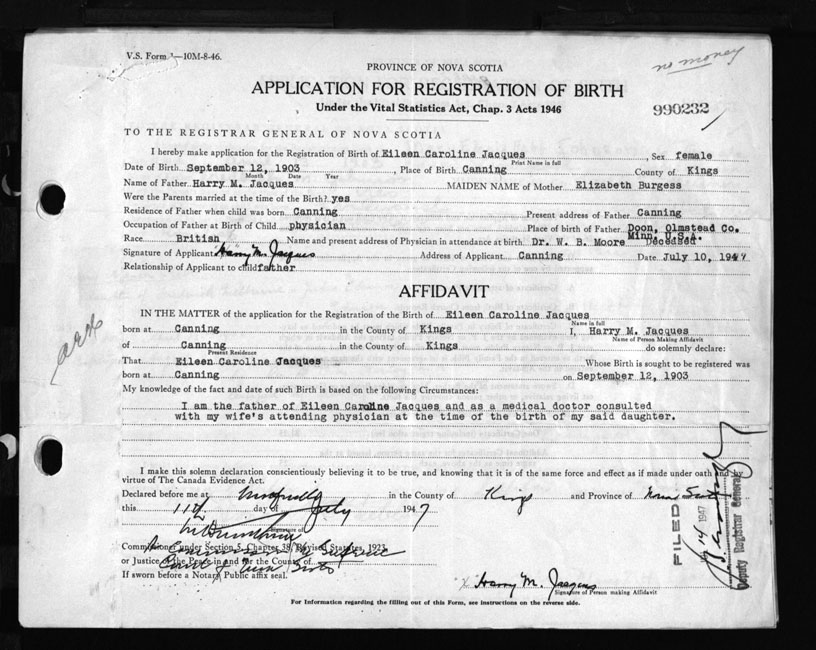 V.S. Form —10M-8-46.
no money
PROVINCE OF NOVA SCOTIA
APPLICATION FOR REGISTRATION OF BIRTH
Under the Vital Statistics Act, Chap. 3 Acts 1946
990232
TO THE REGISTRAR GENERAL OF NOVA SCOTIA
I hereby make application for the Registration of Birth of Eileen Caroline Jacques, Sex female
Print Name in full
Date of Birth September 12, 1903, Place of Birth Canning County of Kings
Month Date Year
Name of Father Harry M. Jacques MAIDEN NAME of Mother Elizabeth Burgess
Were the Parents married at the time of the Birth? yes
Residence of Father when child was born Canning Present address of Father Canning
Occupation of Father at Birth of Child physician Place of birth of Father Doon, Olmstead Co. Minn. U.S.A.
Race British Name and present address of Physician in attendance at birth Dr. W. B. Moore Deceased
Signature of Applicant Harry M. Jacques Address of Applicant Canning Date July 10, 1947
Relationship of Applicant to child father
AFFIDAVIT
IN THE MATTER of the application for the Registration of the Birth of Eileen Caroline Jacques
Name in full
born at Canning in the County of Kings I, Harry M. Jacques
Name of Person Making Affidavit
of Canning in the County of Kings do solemnly declare:
Present Residence
That Eileen Caroline Jacques Whose Birth is sought to be registered was
born at Canning on September 12, 1903
My knowledge of the fact and date of such Birth is based on the following Circumstances:
I am the father of Eileen Caroline Jacques and as a medical doctor consulted
with my wife's attending physician at the time of the birth of my said daughter.
I make this solemn declaration conscientiously believing it to be true, and knowing that it is of the same force and effect as if made under oath and by
virtue of The Canada Evidence Act.
Declared before me at in the County of Kings and Province of Nova Scotia
this 11th day of July 1947
Signature of
Commissioner under Section 5, Chapter 38, Revised Statutes, 1923
or Justice of the Peace in and for the County of
If sworn before a Notary Public affix seal.
Harry M. Jacques
Signature of Person making Affidavit
For Information regarding the filling out of this Form, see instructions on the reverse side.
FILED
1947
Deputy Registrar General